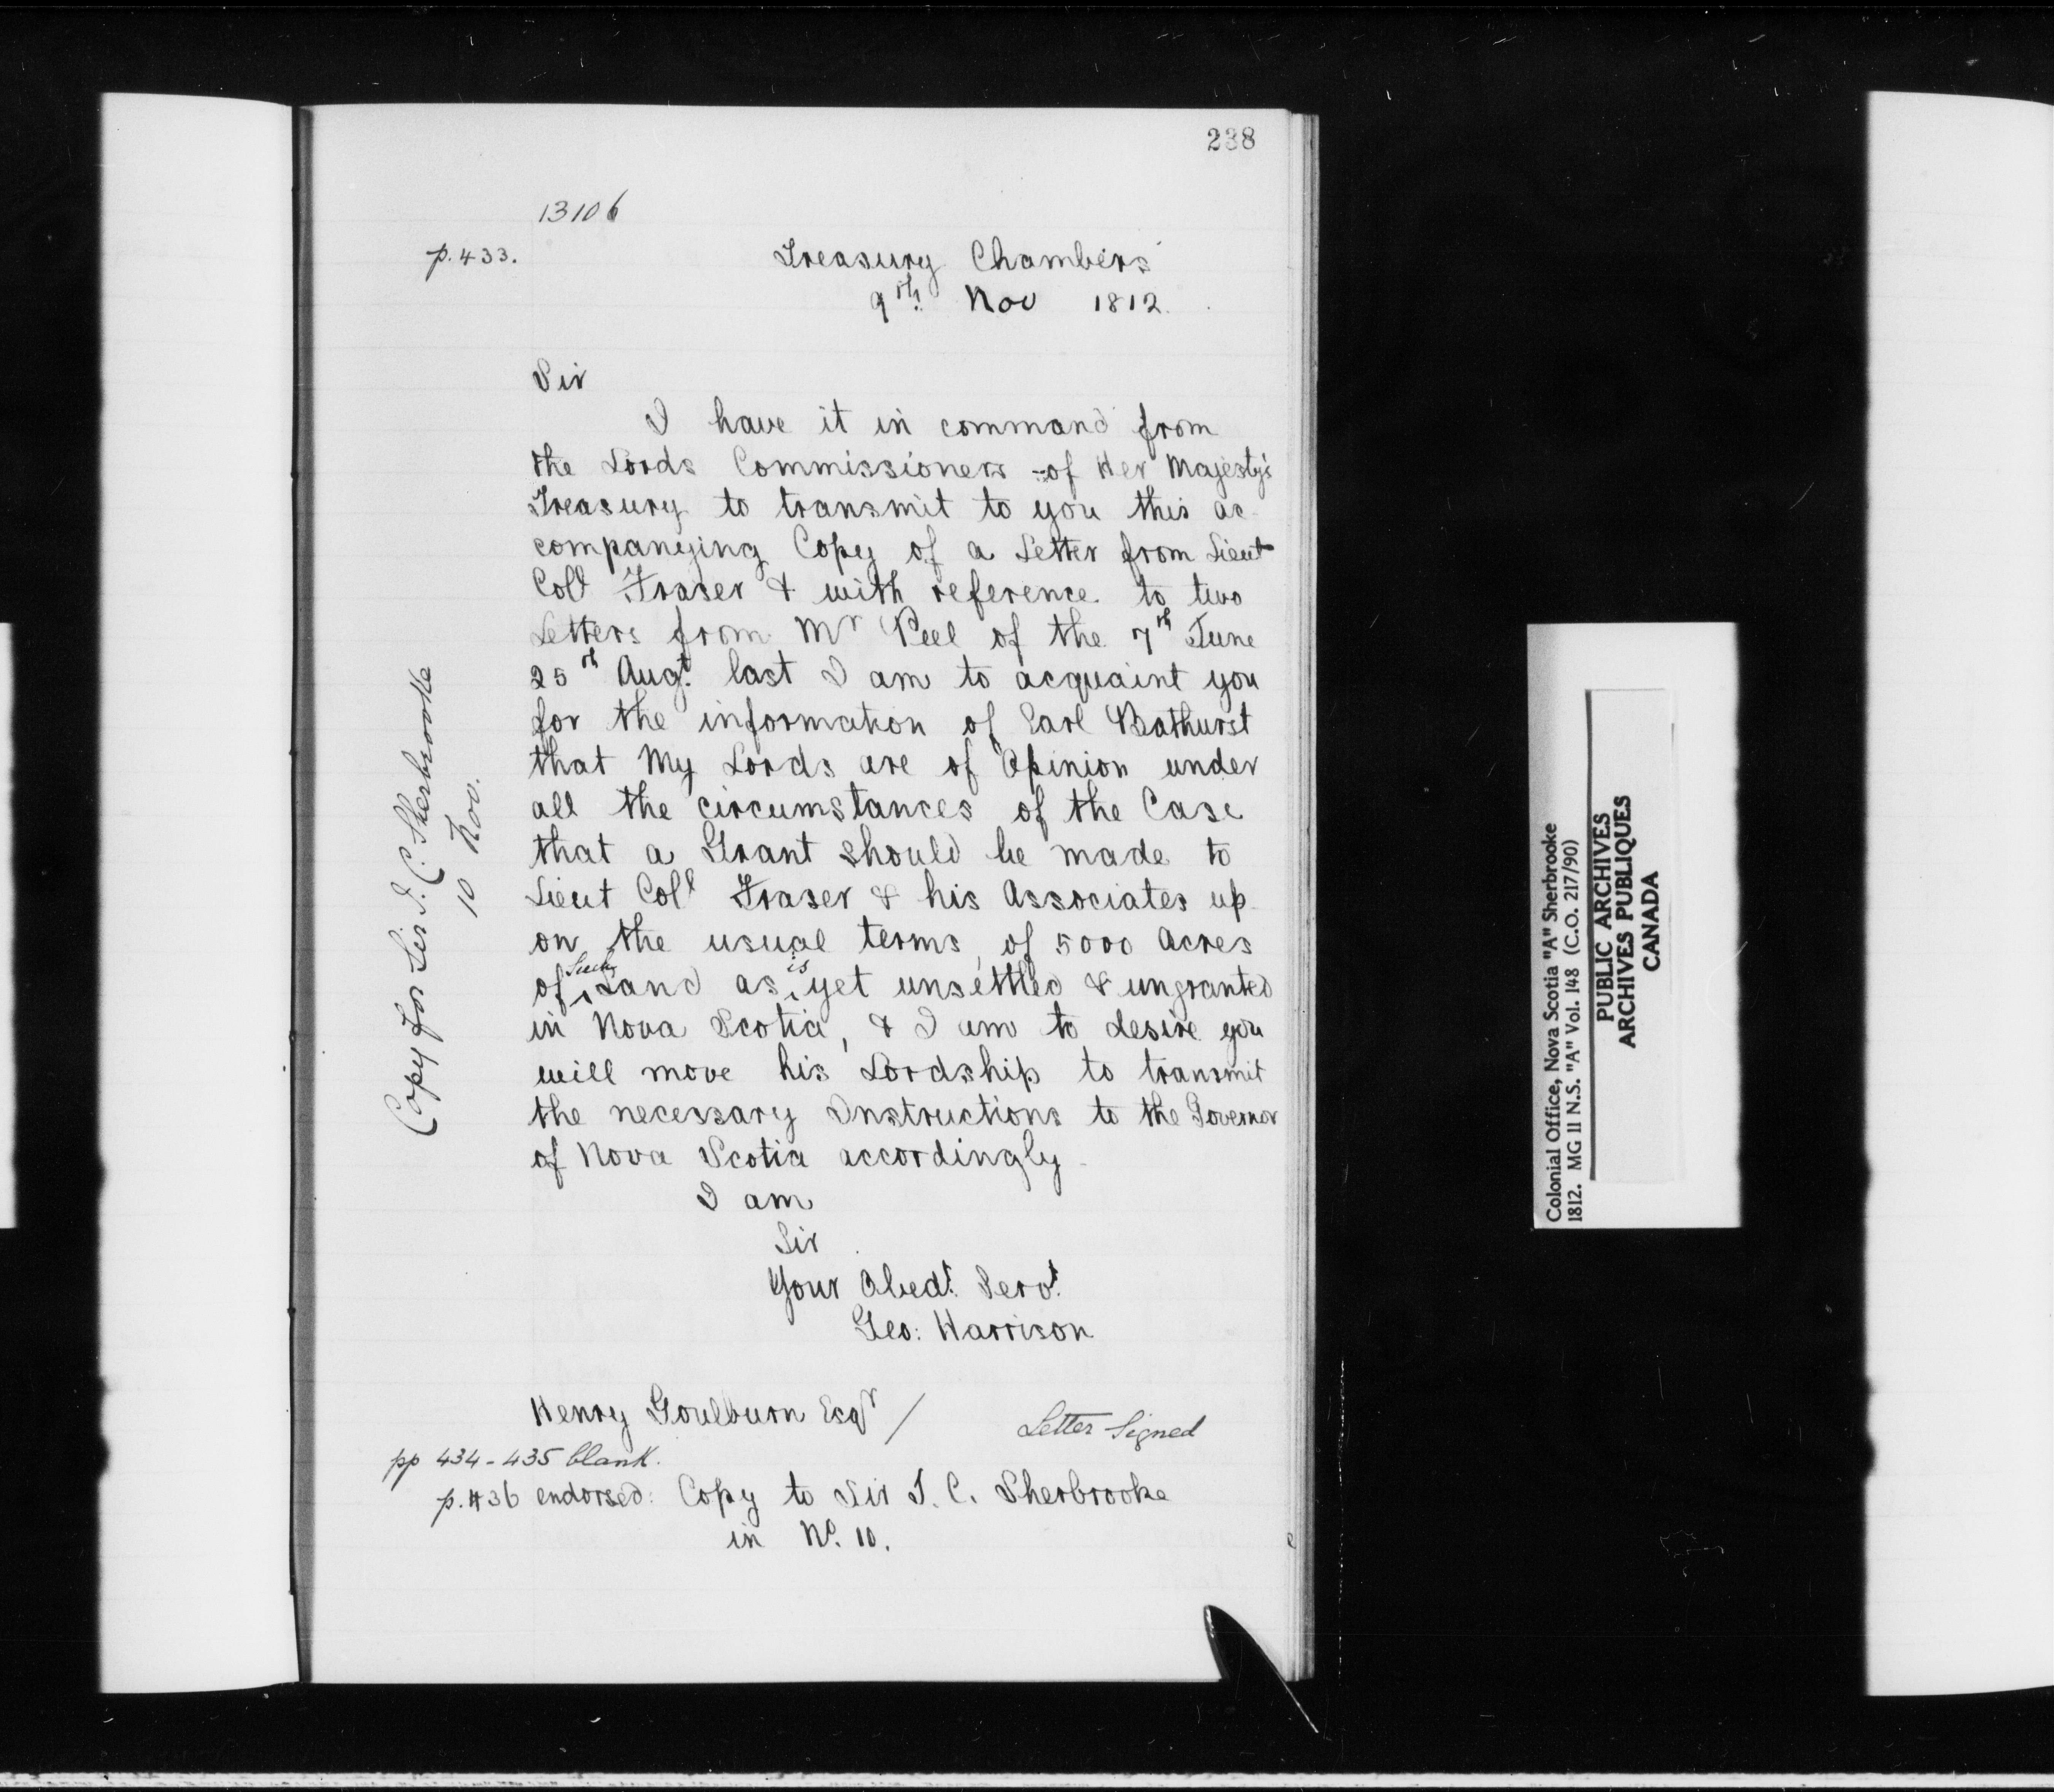 238
13106
p. 433.
Treasury Chambers
9th. Nov 1812.
Sir
I have it in command from
the Lords Commissioners of Her Majesty's
Treasury to transmit to you this ac-
companying Copy of a Letter from Lieut
Coll Fraser & with reference to two
Letters from Mr Peel of the 7th June
25th Augt. last I am to acquaint you
for the information of Earl Bathurst
that My Lords are of Opinion under
all the circumstances of the Case
that a Grant should be made to
Lieut Coll Fraser & his Associates up-
on the usual terms, of 5000 Acres
of such Land as is yet unsettled & ungranted
in Nova Scotia, & I am to desire you
will move his Lordship to transmit
the necessary Instructions to the Governor
of Nova Scotia accordingly -
I am
Sir
Your Obedt. Servt.
Geo: Harrison
Henry Goulburn Esqr /
Letter Signed
pp 434-435 blank.
p. 436 endorsed: Copy to Sir J. C. Sherbrooke
in No. 10.
Copy for Sir J. C. Sherbrooke
10 Nov.
Colonial Office, Nova Scotia "A" Sherbrooke
1812. MG 11 N.S. "A" Vol. 148 (C.O. 217/90)
PUBLIC ARCHIVES
ARCHIVES PUBLIQUES
CANADA